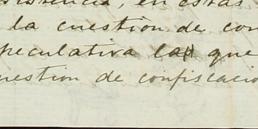 sistencia, en estas
la cuestion de con
peculativa la que
uestion de confiscacio